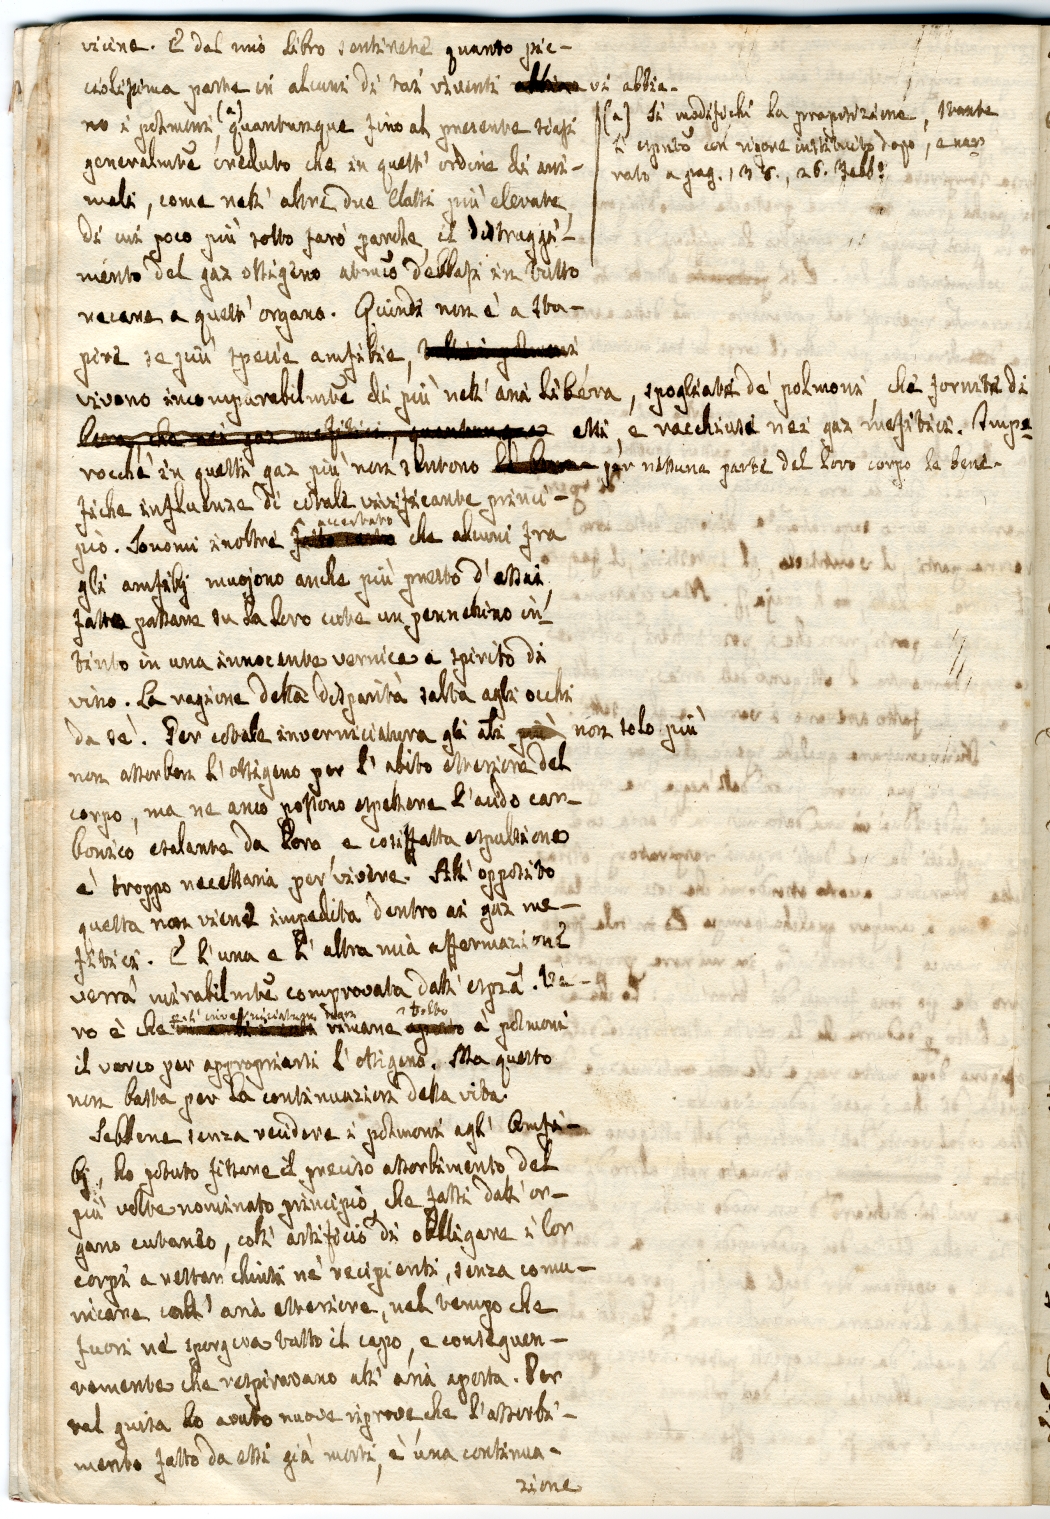 vicine. E dal mio Libro sentirete quanto pic-
ciolissima parte in alcuni di tai viventi vi abbia-
no i polmoni (a) quantunque fino al presente siasi
generalmte creduto che in quest' ordine di ani-
mali, come nell' altre due Classi più elevate,
di cui poco più sotto farò parole, il distruggi-
mento del gaz ossigeno atmico debbasi in tutto
recare a quest' organo. Quindi non è a stu-
pire se più specie amfibie,
vivono incomparabilmte di più nell' aria libera, spogliate de' polmoni, che fornite di
essi, e racchiuse nei gaz mefitici. Impe
rocchè in questi gaz più non sentono per nessuna parte del loro corpo le bene-
fiche influenze di cotale vivificante princi-
pio. Sonomi inoltre accertato che alcuni fra
gli amfibj muojono anche più presto d'assai,
fatto passare su la loro cute un pennellino in-
tinto in una innocente vernice a spirito di
vino. La ragione della disparità salta agli occhi
da sè. Per cotale inverniciatura gli uni non solo più
non assorbon l'ossigeno per l'abito esteriore del
corpo, ma ne anco possono espellere l'acido car-
bonico esalante da loro e cosiffatta espulsione
è troppo necessaria per vivere. All' opposito
questa non viene impedita dentro ai gaz me-
fitici. E l'una e l'altra mia affermazione
verrà mirabilmte comprovata dall' esprza. Ve-
ro è che nell' inverniciatura non rimane tolto a' polmoni
il varco per appropriarsi l'ossigeno. Ma questo
non basta per la continuazion della vita.
Sebbene senza recidere i polmoni agli Amfi-
bj, ho potuto fissare il preciso assorbimento del
più volte nominato principio, che fassi dall' or-
gano cutaneo, coll' artificio di obbligare i lor
corpi a restar chiusi ne' recipienti, senza comu-
nicare coll' aria esteriore, nel tempo che
fuori ne sporgeva tutto il capo, e conseguen-
temente che respiravano all' aria aperta. Per
tal guisa ho avuto nuove riprove che l'assorbi-
mento fatto da essi già morti, è una continua-
zione
(a) Si modifichi la proposizione, stante
l' esprmto con rigore instituito dopo, e nar
rato a pag. 138., 26. Febbo